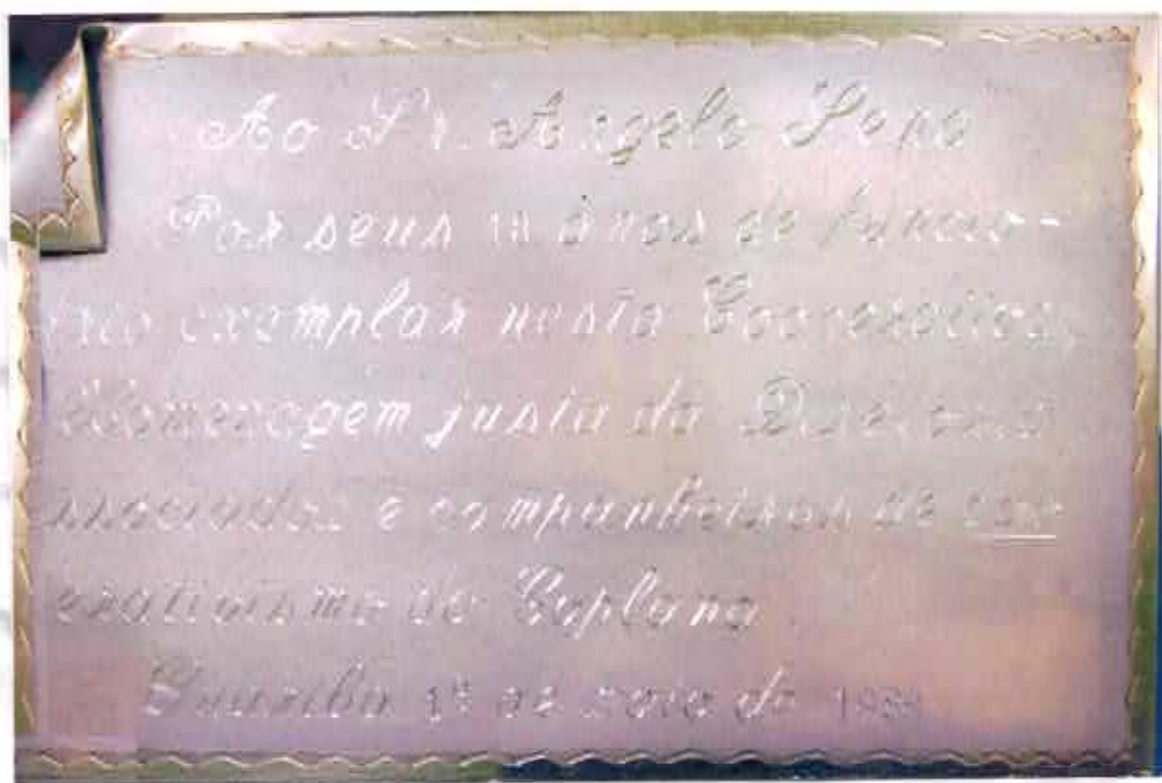 Ao Sr. Angelo Pena
Por seus 18 anos de funcio-
rio exemplar nesta Cooperativa,
Homenagem justa da Diretoria
associados e companheiros de coop
erativismo da Coplana
Guariba 1º de maio de